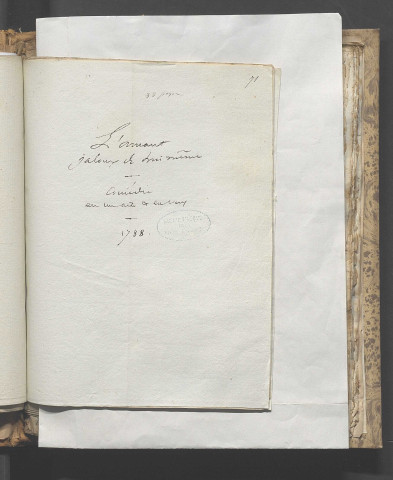 71
L'amant
jaloux de lui même
comédie
en un acte et en vers
1788.